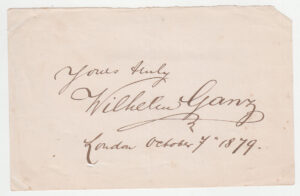 Yours truly
Wilhelm Ganz
London October 7th 1879.